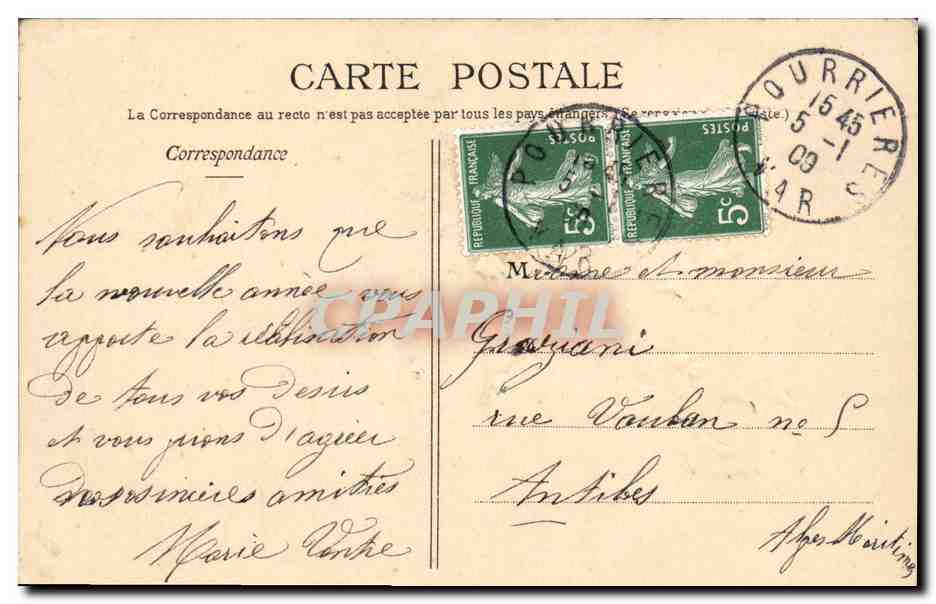 CARTE POSTALE
La Correspondance au recto n'est pas acceptée par tous les pays étrangers (Se
Correspondance
POURRIERES
15 45
5 - 1
09
VAR
REPUBLIQUE FRANÇAISE
POSTES
5c
REPUBLIQUE FRANÇAISE
POSTES
5c
POURRIERES
VAR
Vous souhaitons que
la nouvelle année vous
apporte la réalisation
de tous vos desirs
et vous prions d'agréer
nos sincères amitiés
Marie
Madame et monsieur
Graziani
rue Vauban no 5
Antibes
Alpes Maritimes
CPAPHIL